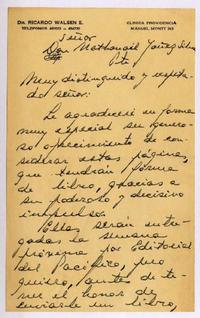 DR. RICARDO WALSEN E.
CLINICA PROVIDENCIA
MANUEL MONTT 303
Señor
Don Nathanael Yáñez Silva
Pte
Muy distinguido y respeta-
do señor:
Le agradeceré en forma
muy especial su genero-
so ofrecimiento de con-
siderar estas páginas,
que tendrán forma
de libro, gracias a
su poderoso y decisivo
impulso.
Ellas serán entre-
gadas la semana
próxima por Editorial
del Pacífico, pero
quiero, antes de te-
ner el honor de
enviarle un libro,